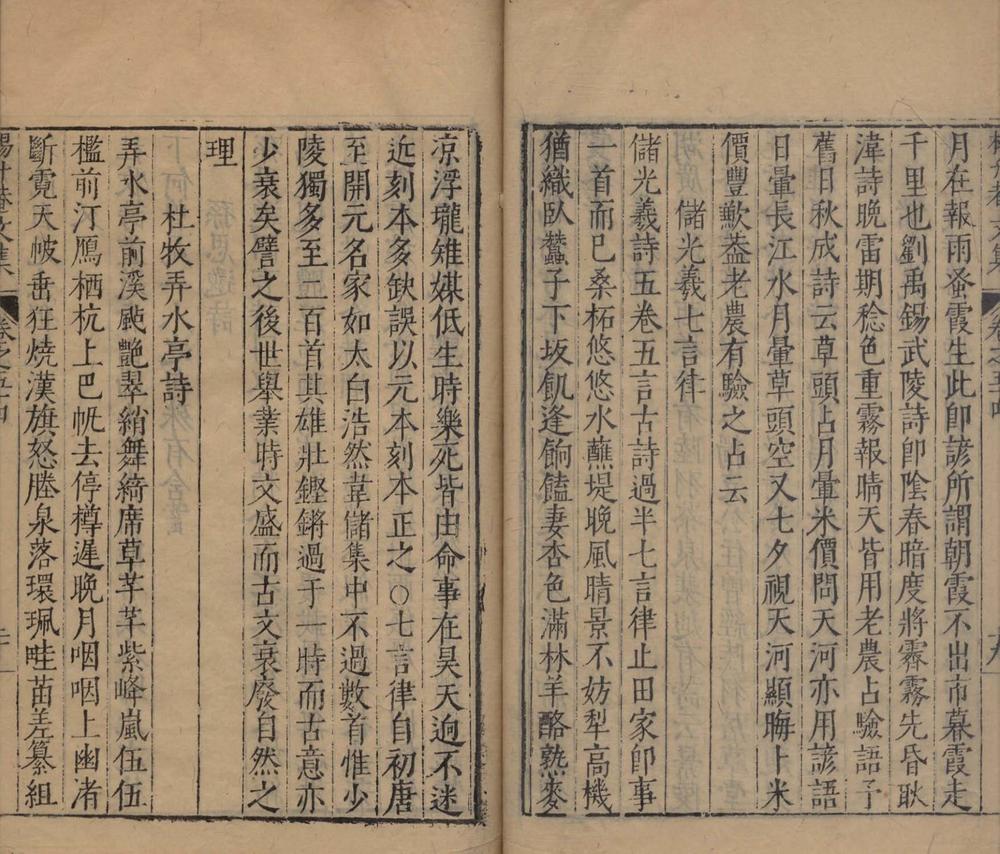 月在報雨蚤霞生此卽諺所謂朝霞不出市暮霞走
千里也劉禹錫武陵詩卽陰春暗度將霽霧先昏耿
湋詩晚雷期稔色重霧報晴天皆用老農占驗語予
舊日秋成詩云草頭占月暈米價問天河亦用諺語
日暈長江水月暈草頭空又七夕視天河顯晦卜米
價豐歉葢老農有驗之占云
儲光羲七言律
儲光羲詩五卷五言古詩過半七言律止田家卽事
一首而已桑柘悠悠水蘸堤晚風晴景不妨犁高機
猶織臥蠶子下坂飢逢餉饁妻杏色滿林羊酪熟麥
涼浮壠雉媒低生時樂死皆由命事在昊天逈不迷
近刻本多缺誤以元本刻本正之○七言律自初唐
至開元名家如太白浩然韋儲集中不過數首惟少
陵獨多至二百首其雄壯鏗鏘過于一時而古意亦
少衰矣譬之後世舉業時文盛而古文衰廢自然之
理
杜牧弄水亭詩
弄水亭前溪颭艷翠綃舞綺席草芊芊紫峰嵐伍伍
檻前汀鴈栖杭上巴帆去停樽遲晚月咽咽上幽渚
斷霓天帔畨狂燒漢旗怒塍泉落環珮畦苗差纂組